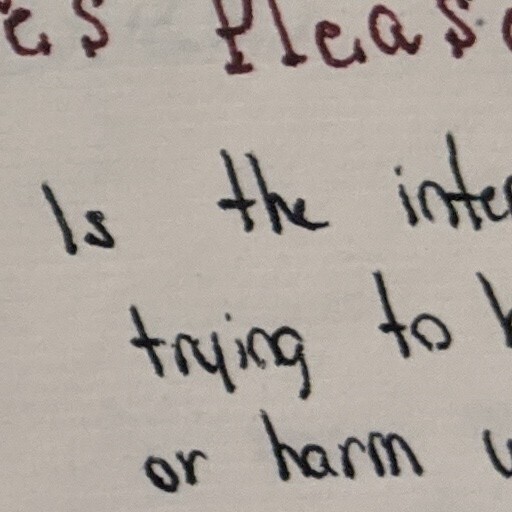 es Please
Is the inter
trying to
or harm